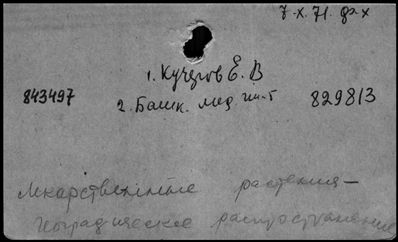 7.X.71. фа-х
1. Кучеров Е. В
843497 2. Башк. мед. ин-т 829813
лекарственные растения —
географическое распространение